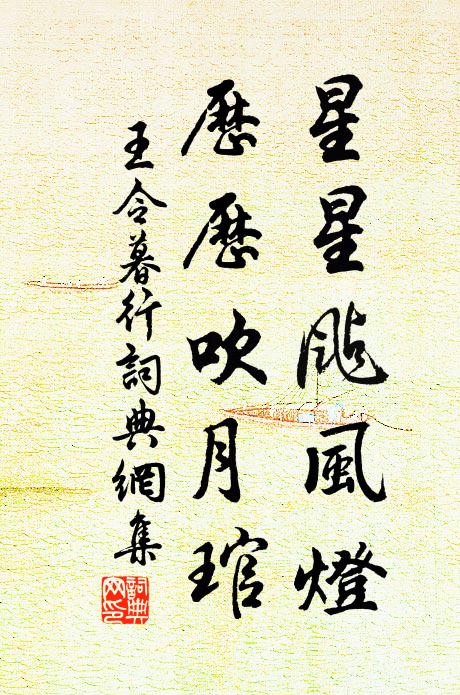 星星颭風燈
歷歷吹月琯
王令暮行詞典網集
詞典网印